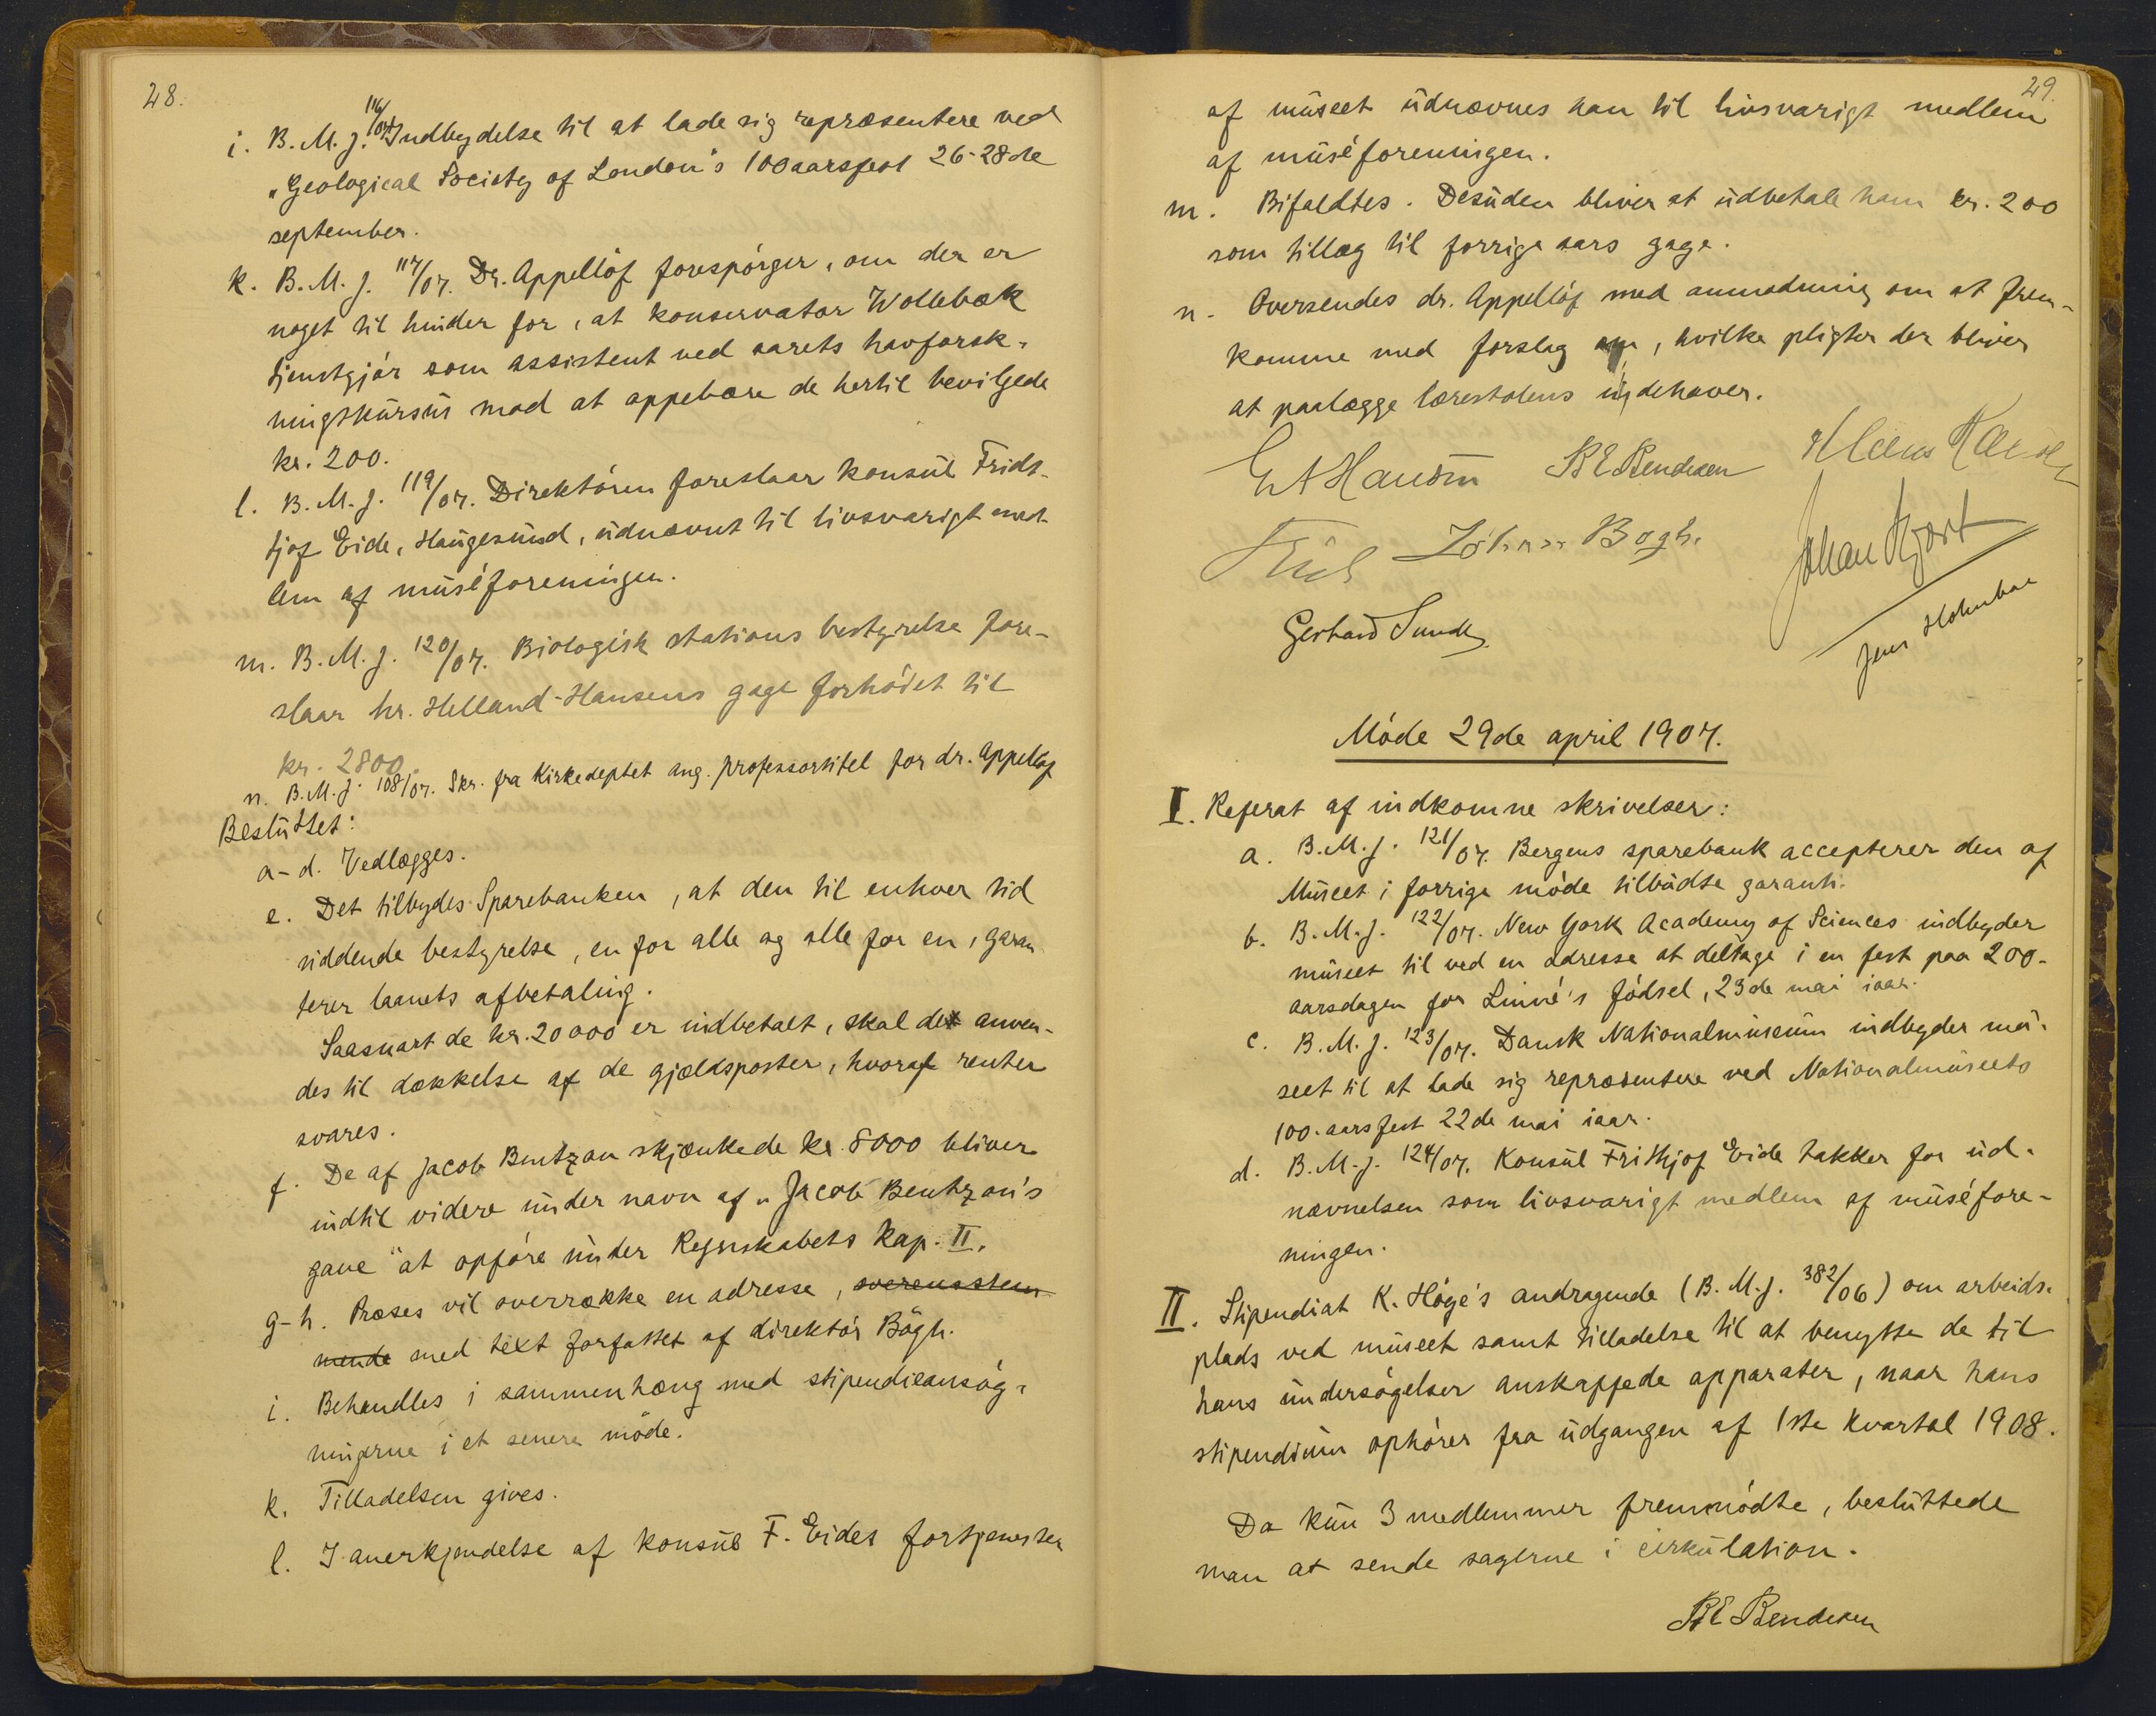 28.
i. B. M. J. 116/07. Indbydelse til at lade sig repræsentere ved
„Geological Society of London's 100aarsfest 26-28de
september.
k. B. M. J. 117/07. Dr. Appellöf forespörger, om der er
noget til hinder for, at konservator Wollebæk
tjenstgjör som assistent ved aarets havforsk-
ningskursus mod at oppebære de hertil bevilgede
kr. 200.
l. B. M. J. 119/07. Direktören foreslaar konsul Fridt-
tjof Eide, Haugesund, udnævnt til livsvarigt med-
lem af muséforeningen.
m. B. M. J. 120/07. Biologisk stations bestyrelse fore-
slaar hr. Helland-Hansens gage forhöiet til
kr. 2800.
n. B. M. J. 108/07. Skr. fra Kirkedeptet ang. professortitel for dr. Appellöf
Besluttet:
a-d. Vedlægges.
e. Det tilbydes Sparebanken, at den til enhver tid
siddende bestyrelse, en for alle og alle for en, garan-
terer laanets afbetaling.
Saasnart de kr. 20000 er indbetalt, skal det anven-
des til dækkelse af de gjældsposter, hvoraf renter
svares.
f. De af Jacob Bentzon skjænkede kr. 8000 bliver
indtil videre under navn af „Jacob Bentzon's
gave" at opföre under Regnskabets Kap. II.
g-h. Præses vil overrække en adresse, overensstem-
mende med text forfattet af direktör Bögh.
i. Behandles i sammenhæng med stipendieansög-
ningerne i et senere möde.
k. Tilladelsen gives.
l. I anerkjendelse af konsul F. Eides fortjenester
29.
af museet udnævnes han til livsvarigt medlem
af muséforeningen.
m. Bifaldtes. Desuden bliver at udbetale ham kr. 200
som tillæg til forrige aars gage.
n. Oversendes dr. Appellöf med anmodning om at frem-
komme med forslag om, hvilke pligter der bliver
at paalægge lærestolens indehaver.
G A Hansen B E Bendixen
Johan Bögh. Johan Hjort
Gerhard Sundt Jens Holmboe
Möde 29de april 1907.
I. Referat af indkomne skrivelser:
a. B. M. J. 121/07. Bergens sparebank accepterer den af
Museet i forrige möde tilbudte garanti.
b. B. M. J. 122/07. New York Academy of Sciences indbyder
museet til ved en adresse at deltage i en fest paa 200-
aarsdagen for Linné's födsel, 23de mai iaar.
c. B. M. J. 123/07. Dansk Nationalmuseum indbyder mu-
seet til at lade sig repræsentere ved Nationalmuseets
100-aarsfest 22de mai iaar.
d. B. M. J. 124/07. Konsul Frithjof Eide takker for ud-
nævnelsen som livsvarigt medlem af muséfore-
ningen.
II. Stipendiat K. Höge's andragende (B. M. J. 382/06) om arbeids-
plads ved museet samt tilladelse til at benytte de til
hans undersögelser anskaffede apparater, naar hans
stipendium ophörer fra udgangen af 1ste kvartal 1908.
Da kun 3 medlemmer fremmödte, besluttede
man at sende sagerne i cirkulation.
B E Bendixen